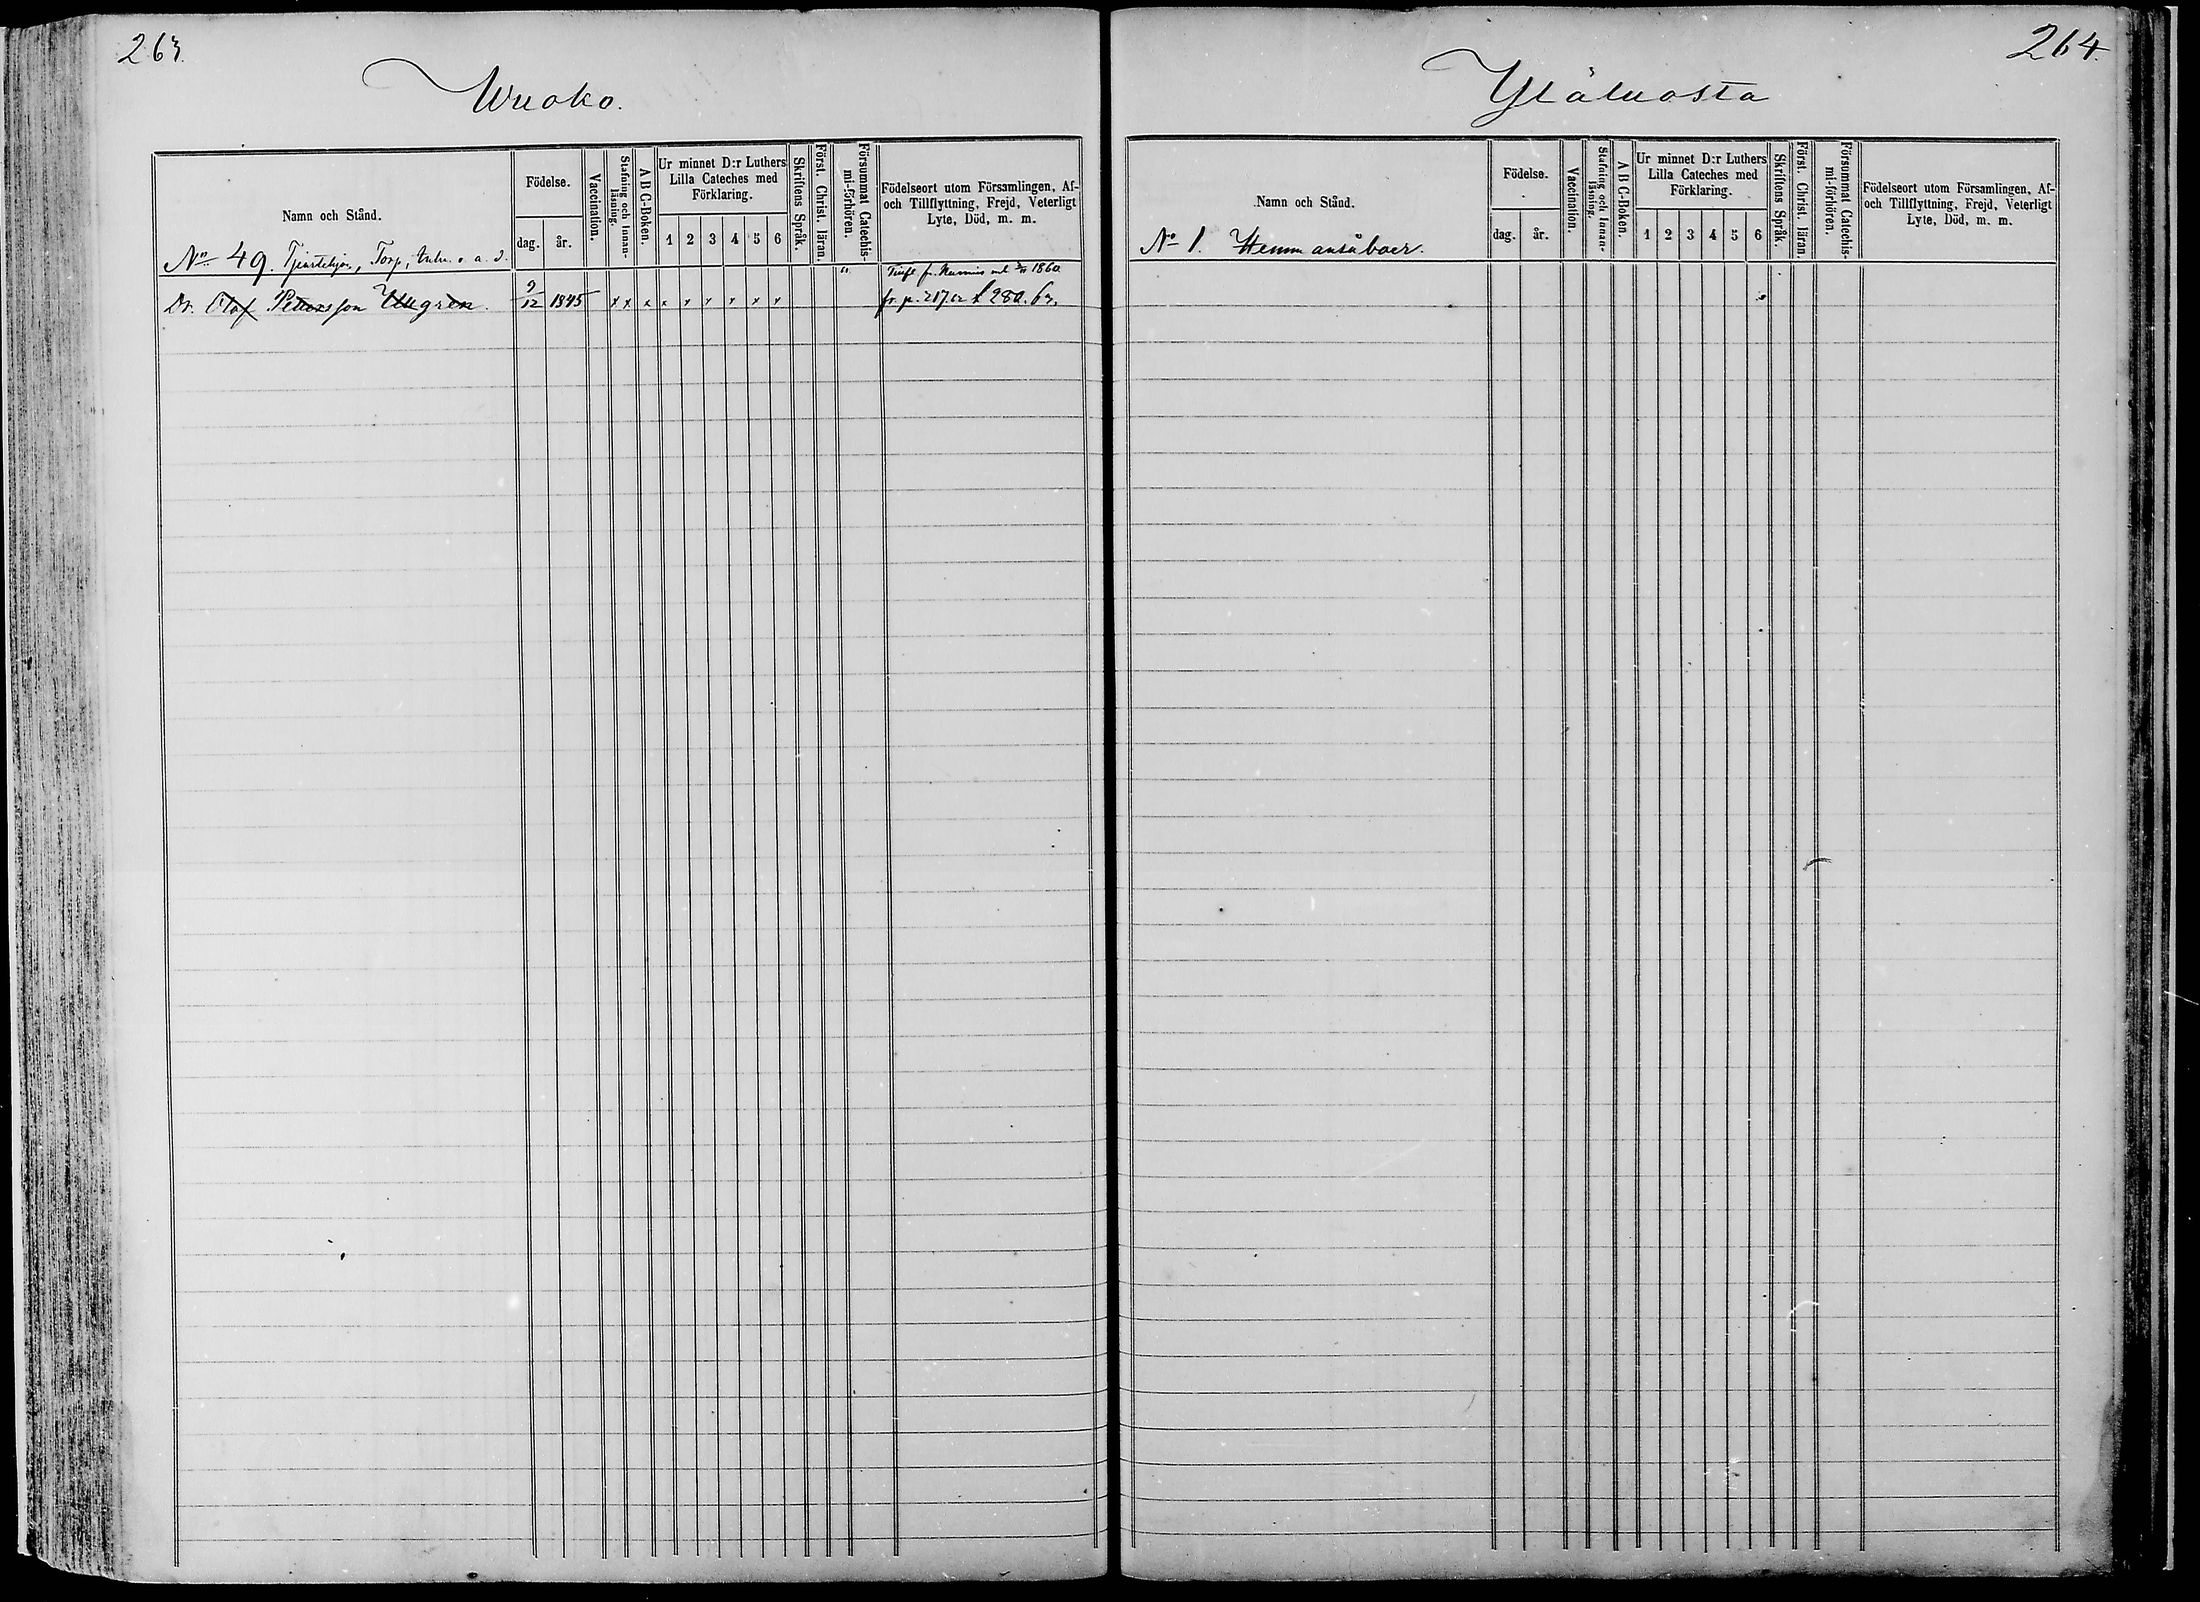 263.
Wuoko.
Namn och Stånd.
Födelse.
dag.
år.
Vaccination.
Stafning och Innan-
läsning.
A B C-Boken.
Ur minnet D:r Luthers
Lilla Cateches med
Förklaring.
1 2 3 4 5 6
Skriftens Språk.
Först. Christ. läran.
Försummat Catechis-
mi-förhören.
Födelseort utom Församlingen, Af-
och Tillflyttning, Frejd, Veterligt
Lyte, Död, m. m.
No 49. Tjenstehjon, Torp, Enk. o. a. d.
fr. 1860
Dr. Olof Petersson Uhgren. 9/12 1845 x x x x x x x x x fr. p. 217.62 t 280. 63.
264.
Yläluosta
Namn och Stånd.
Födelse.
dag.
år.
Vaccination.
Stafning och Innan-
läsning.
A B C-Boken.
Ur minnet D:r Luthers
Lilla Cateches med
Förklaring.
1 2 3 4 5 6
Skriftens Språk.
Först. Christ. läran.
Försummat Catechis-
mi-förhören.
Födelseort utom Församlingen, Af-
och Tillflyttning, Frejd, Veterligt
Lyte, Död, m. m.
No 1. Hemmansåboer.